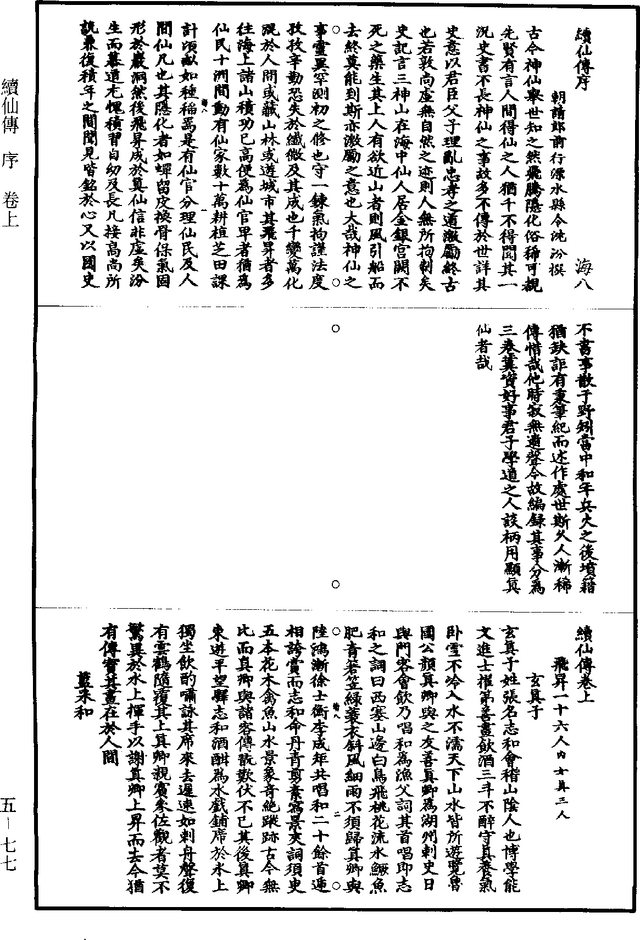 續仙傳序
朝請郎前行溧水縣令沈汾撰 海八
古今神仙舉世知之然飛騰隱化俗稀可覩
先賢有言人間得仙之人猶千不得聞其一
況史書不長神仙之事故多不傳於世詳其
史意以君臣父子理亂忠孝之道激勵終古
也若敦尚虛無自然之迹則人無所拘制矣
史記言三神山在海中仙人居金銀宮闕不
死之藥生其上人有欲近山者則風引船而
去終莫能到斯亦激勵之意也大哉神仙之
事靈異罕測初之修也守一鍊氣拘謹法度
孜孜辛勤恐失於纖微及其成也千變萬化
混於人間或藏山林或遊城市其飛昇者多
往海上諸山積功已高便為仙官卑者猶為
仙民十洲間動有仙家數十萬耕植芝田課
計頃畝如種稻焉是有仙官分理仙民及人
間仙凡也其隱化者如蟬留皮換骨保氣固
形於巖洞然後飛昇成於真仙信非虛矣汾
生而慕道尤愧積習自幼及長凡接高尚所
說兼復積年之間聞見皆銘於心又以國史
不書事散于野矧當中和年兵火之後墳籍
猶缺詎有秉筆紀而述作處世斯久人漸稀
傳惜哉他時寂無遺聲今故編錄其事分為
三卷冀資好事君子學道之人談柄用顯真
仙者哉
續仙傳卷上
飛昇一十六人內女真三人
玄真子
玄真子姓張名志和會稽山陰人也博學能
文進士擢第善畫飲酒三斗不醉守真養氣
臥雪不冷入水不濡天下山水皆所遊覽魯
國公顏真卿與之友善真卿為湖州刺史日
與門客會飲乃唱和為漁父詞其首唱即志
和之詞曰西塞山邊白鳥飛桃花流水鱖魚
肥青箬笠綠蓑衣斜風細雨不須歸真卿與
陸鴻漸徐士衡李成矩共唱和二十餘首遞
相誇賞而志和命丹青剪素寫景夾詞須臾
五本花木禽魚山水景象奇絕蹤跡古今無
比而真卿與諸客傳翫歎伏不已其後真卿
東遊平望驛志和酒酣為水戲鋪席於水上
獨坐飲酌嘯詠其席來去遲速如刺舟聲復
有雲鶴隨覆其上真卿親賓參佐觀者莫不
驚異於水上揮手以謝真卿上昇而去今猶
有傳寶其畫在於人間
藍采和
續仙傳 序 卷上
五-七七